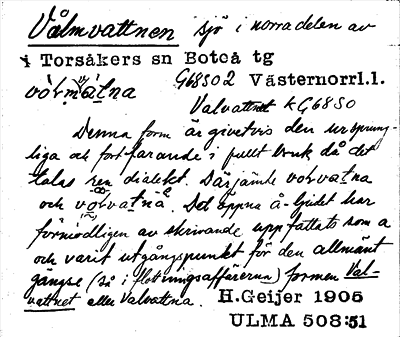 Vålmvattnen sjö i norra delen av
i Torsåkers sn Boteå tg
G68S02 Västernorrl.l.
Valvattnet KG68S0
Denna form är givetvis den ursprung-
liga och fortfarande i fullt bruk då det
talas ren dialekt. Därjämte vo̡lvatna
och vo̡lvatnå. Det öppna å-ljudet har
förmodligen av skrivande uppfattats som a
och varit utgångspunkt för den allmänt
gängse (så i flottningsaffärerna) formen Val-
vattnet eller Valvattna. H.Geijer 1905
ULMA 508:51